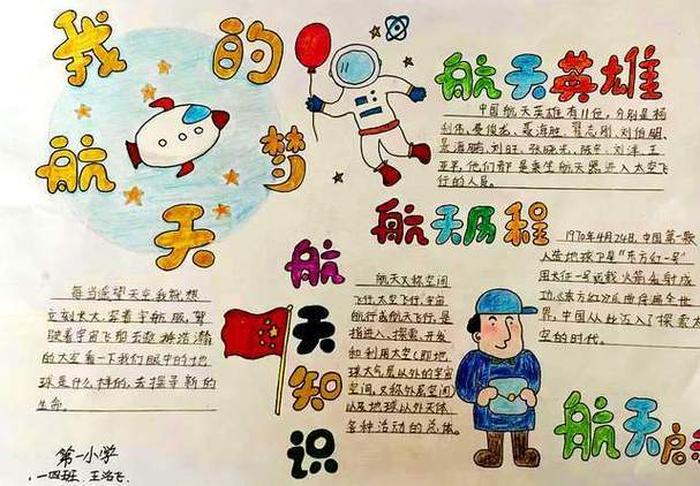 我的
航天梦
每当遥望天空,我就想
立刻长大,穿着宇航服,驾
驶着宇宙飞船去遨游浩瀚
的太空看一下我们眼中的地
球是什么样的,去探寻新的
生命。
第一小学
一四班 王洛飞
航天英雄
中国航天英雄有11位,分别是杨
利伟、费俊龙、聂海胜、翟志刚、刘伯明、
景海鹏、刘旺、张晓光、陈冬、刘洋、王
亚平,他们都是乘坐航天器进入太空飞
行的人员。
航天历程
1970年4月24日,中国第一颗
人造地球卫星"东方红一号"
用长征一号运载火箭发射成
功,《东方红》乐曲传遍全世
界,中国从此迈入了探索太
空的时代。
航天知识
航天又称空间
飞行,太空飞行,宇宙
航行或航天飞行,是
指进入、探索、开发
和利用太空(即地
球大气层以外的宇宙
空间,又称外层空间)
以及地球以外天体
各种活动的总体。
航天启